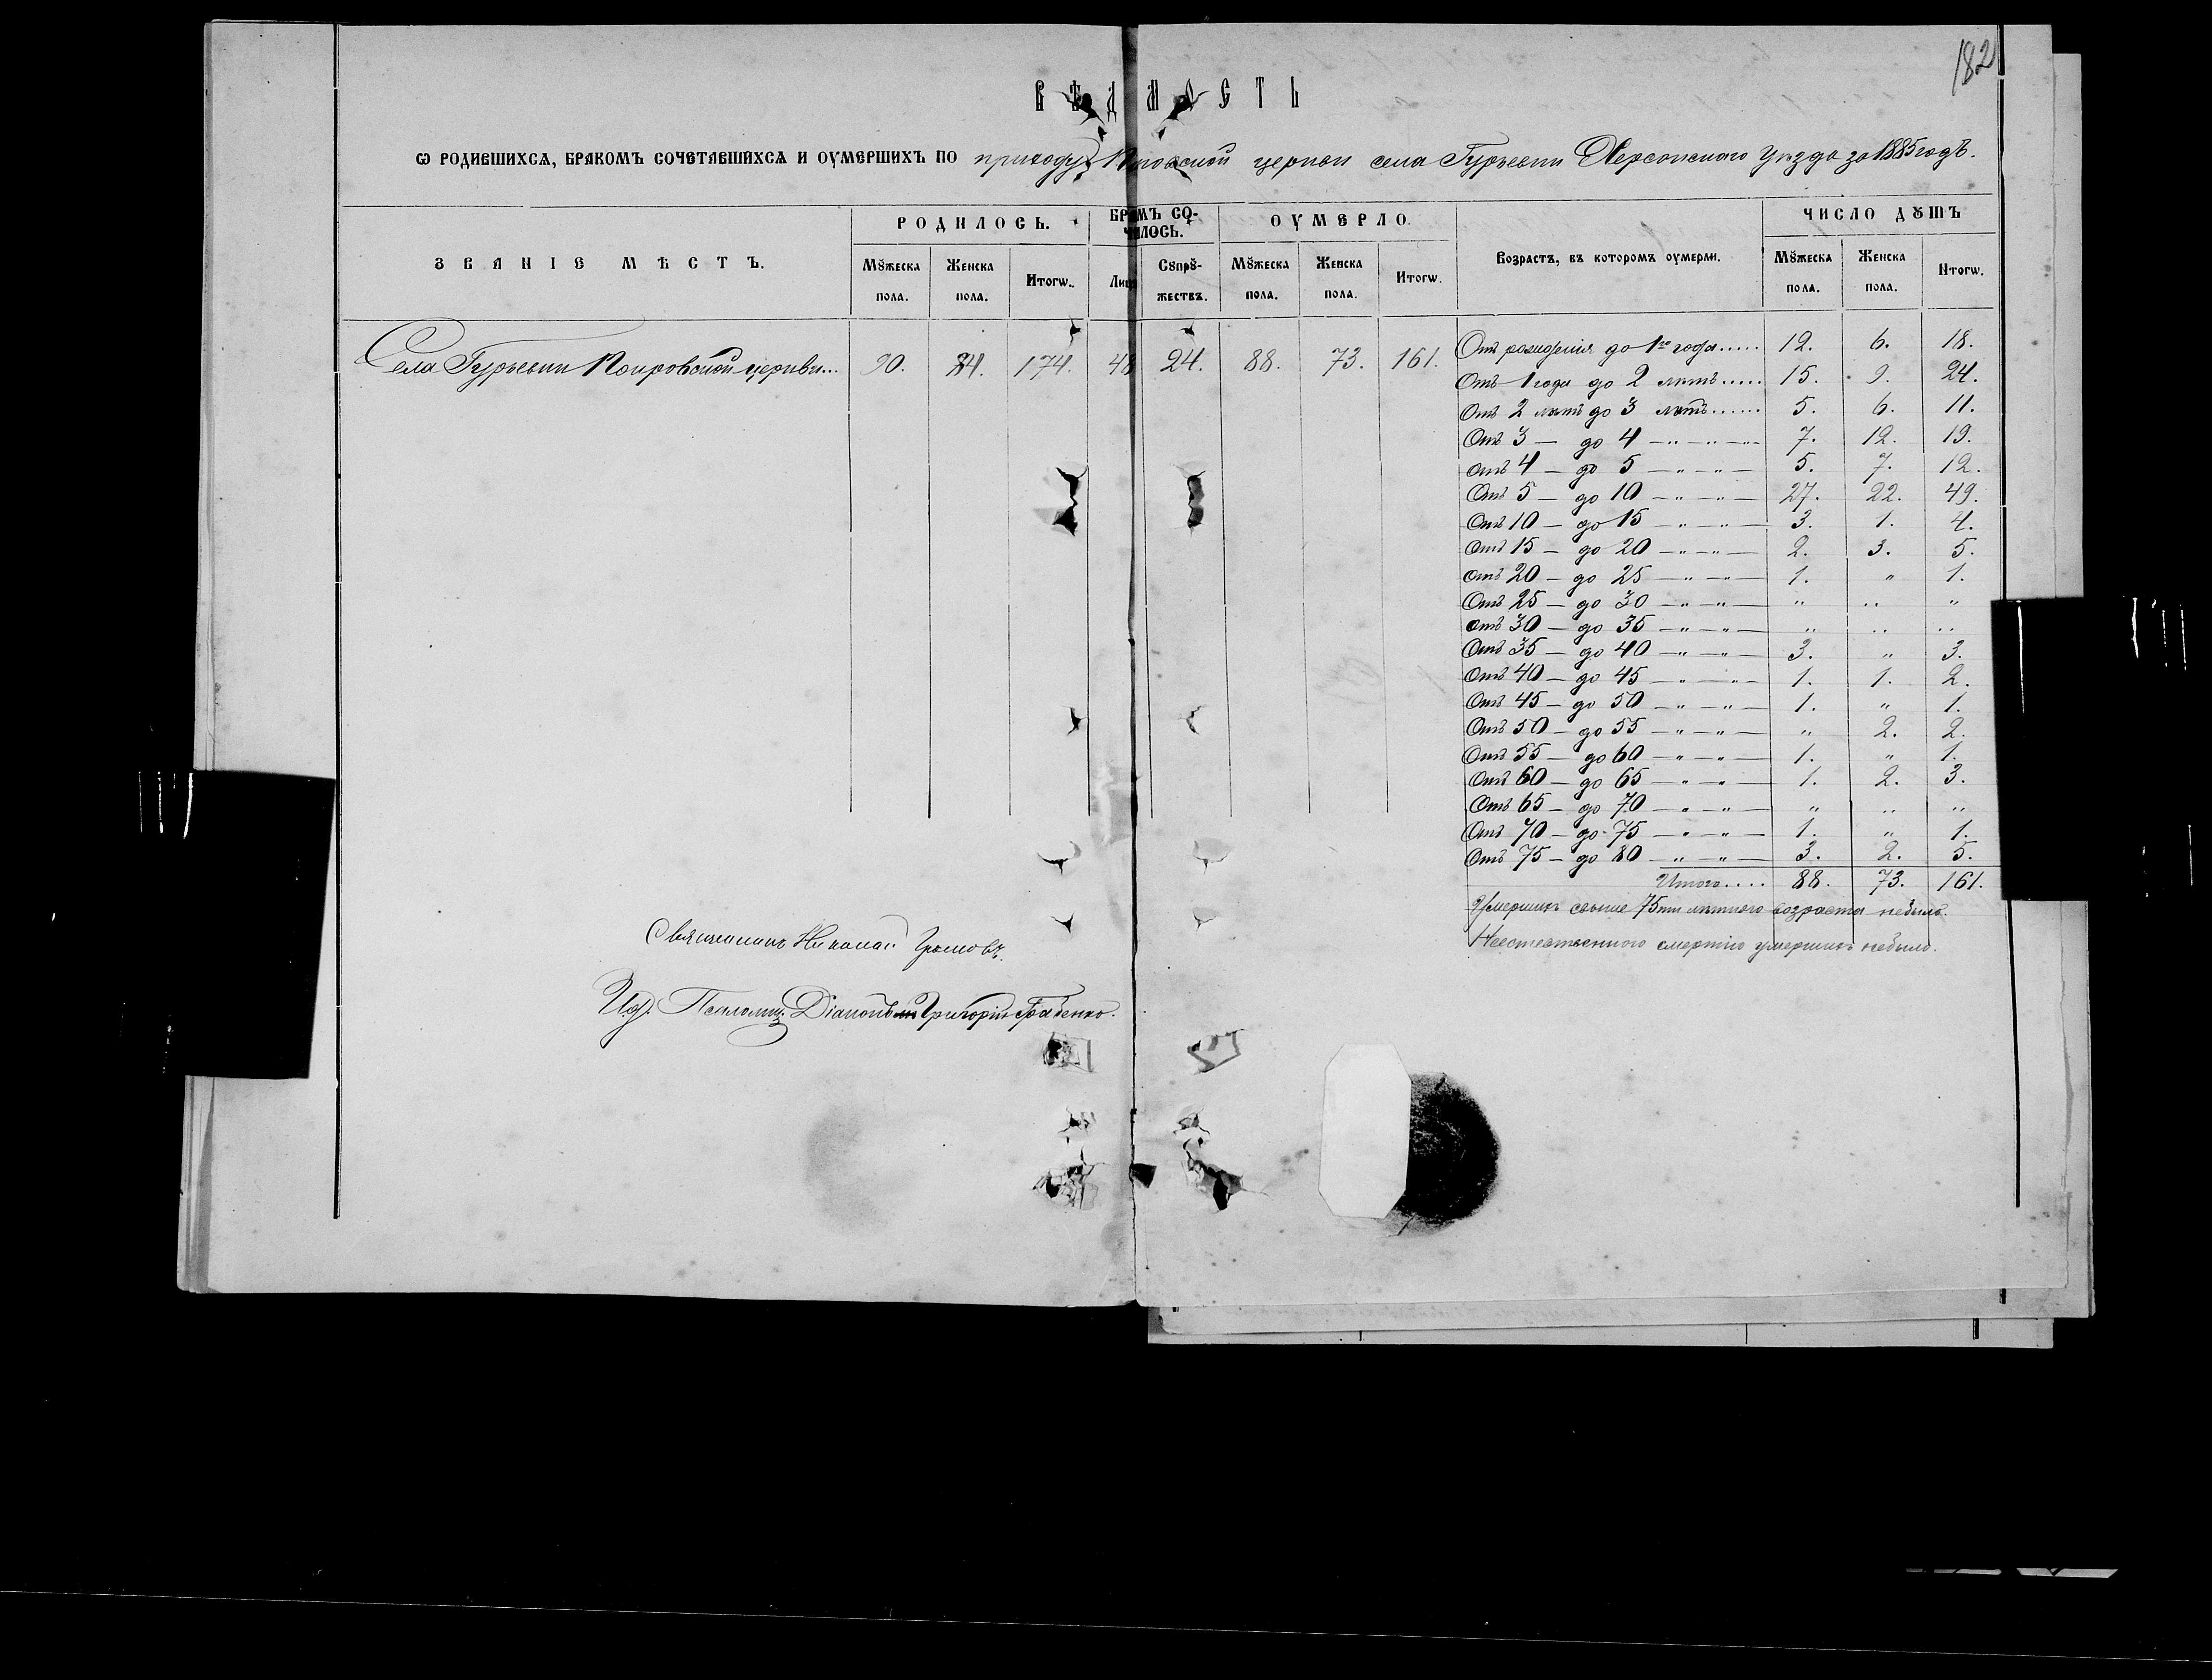 182
ВѢДОМОСТЬ
Ѡ РОДИВШИХСѦ, БРАКОМЪ СОЧЕТАВШИХСѦ И ОУМЕРШИХЪ ПО приходу церкви села Гурьевки Херсонскаго уѣзда за 1885 годъ.
ЗВАНІЕ МѢСТЪ. РОДИЛОСЬ. БРАКОМЪ СО- ОУМЕРЛО. Возрастъ, въ которомъ оумерли. ЧИСЛО ДꙊШЪ
ЧИЛОСЬ.
Мꙋжеска Женска Итогѡ. Лицъ Сꙋпрꙋ- Мꙋжеска Женска Итогѡ. Мꙋжеска Женска Итогѡ.
пола. пола. жествъ. пола. пола. пола. пола.
Села Гурьевки Покровской церкви... 90. 84. 174. 48 24. 88. 73. 161.
Отъ рожденія до 1го года..... 12. 6. 18.
Отъ 1 года до 2 лѣтъ..... 15. 9. 24.
Отъ 2 лѣтъ до 3 лѣтъ...... 5. 6. 11.
Отъ 3 — до 4 — „ — „ — „ — 7. 12. 19.
Отъ 4 — до 5 — „ — „ — 5. 7. 12.
Отъ 5 — до 10 — „ — „ — 27. 22. 49.
Отъ 10 — до 15 — „ — „ — 3. 1. 4.
Отъ 15 — до 20 — „ — „ — 2. 3. 5.
Отъ 20 — до 25 — „ — „ — 1. „ 1.
Отъ 25 — до 30 — „ — „ — „ „ „
Отъ 30 — до 35 — „ — „ — „ „ „
Отъ 35 — до 40 — „ — „ — 3. „ 3.
Отъ 40 — до 45 — „ — „ — 1. 1. 2.
Отъ 45 — до 50 — „ — „ — 1. „ 1.
Отъ 50 — до 55 — „ — „ — „ 2. 2.
Отъ 55 — до 60 — „ — „ — 1. „ 1.
Отъ 60 — до 65 — „ — „ — 1. 2. 3.
Отъ 65 — до 70 — „ — „ — „ „ „
Отъ 70 — до 75 — „ — „ — 1. „ 1.
Отъ 75 — до 80 — „ — „ — 3. 2. 5.
Итого.... 88. 73. 161.
Умершихъ свыше 75ти лѣтняго возраста небыло.
Неестественною смертію умершихъ небыло.
Священникъ Николай
И.д. Псаломщ. Діаконъ Григорій Грабенко.